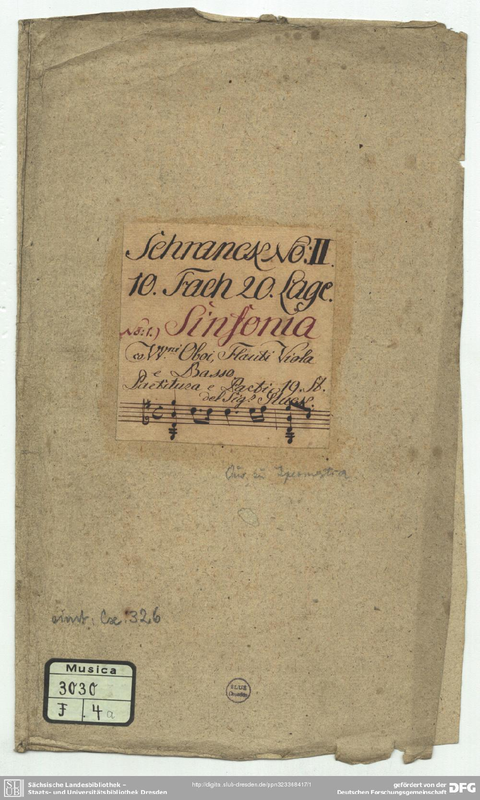 Schranck No: II.
10. Fach 20. Lage.
No: 1.) Sinfonia
co VV.ni Oboi, Flauti Viola
e Basso
Partitura e Parti 19. St.
del Sig.r
Ouv. zu Ipermestra
einst: Cx. 326
Musica
3030
F 4a
SLUB
Dresden
Sächsische Landesbibliothek –
Staats- und Universitätsbibliothek Dresden
http://digital.slub-dresden.de/ppn323368417/1
gefördert von der
Deutschen Forschungsgemeinschaft
DFG